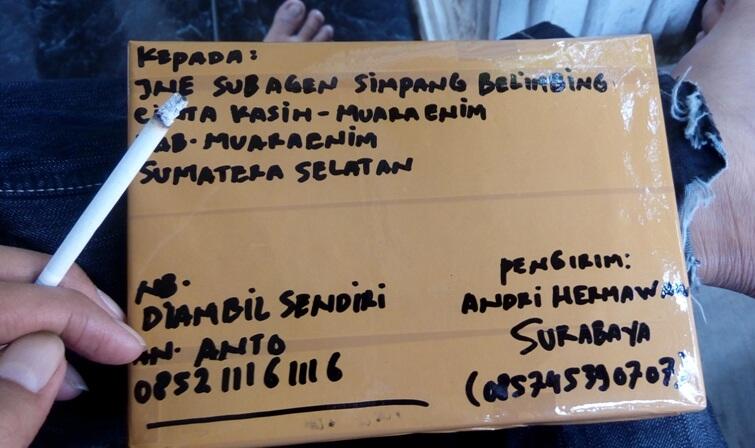 KEPADA:
JNE SUB AGEN SIMPANG BELIMBING
CINTA KASIH - MUARA ENIM
KAB. MUARA ENIM
SUMATERA SELATAN
NB.
DIAMBIL SENDIRI
AN. ANTO
0852 1116 1116
PENGIRIM:
ANDRI HERMAWAN
SURABAYA
(085745390707)